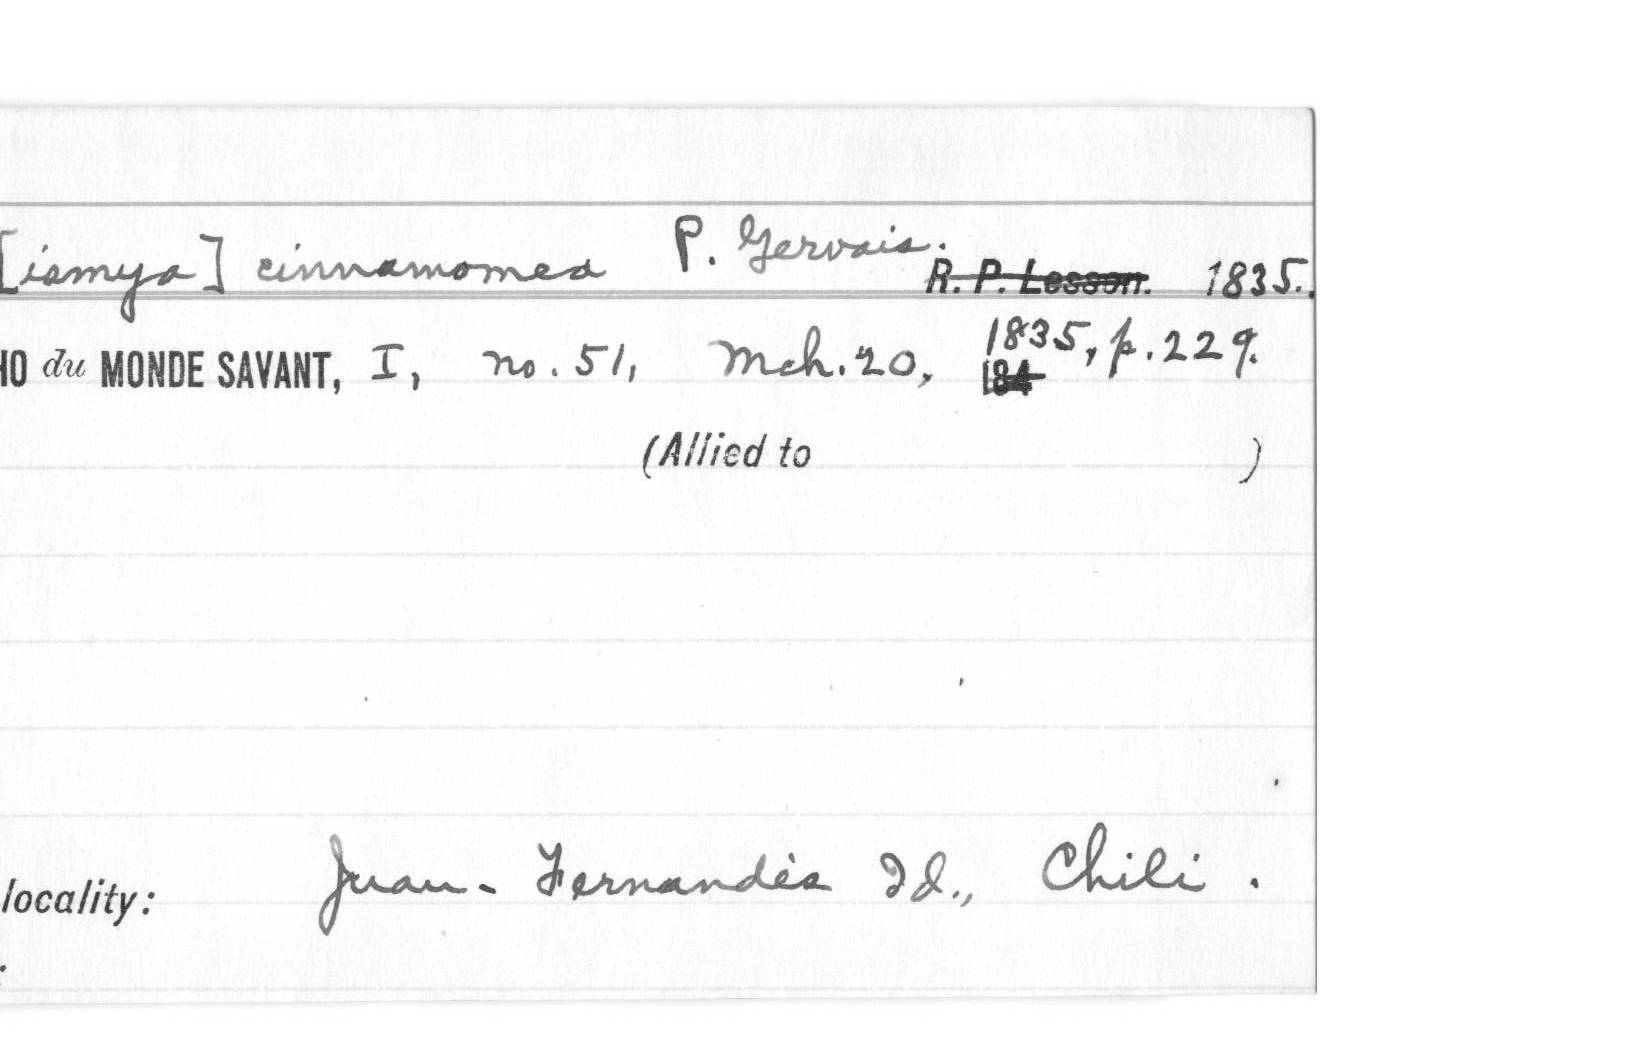 [ismya] cinnamomea P. Gervais. R. P. Lesson. 1835.
HO du MONDE SAVANT, I, no. 51, Mch. 20, 1835, p. 229.
184
(Allied to )
locality: Juan-Fernandès Id., Chili.